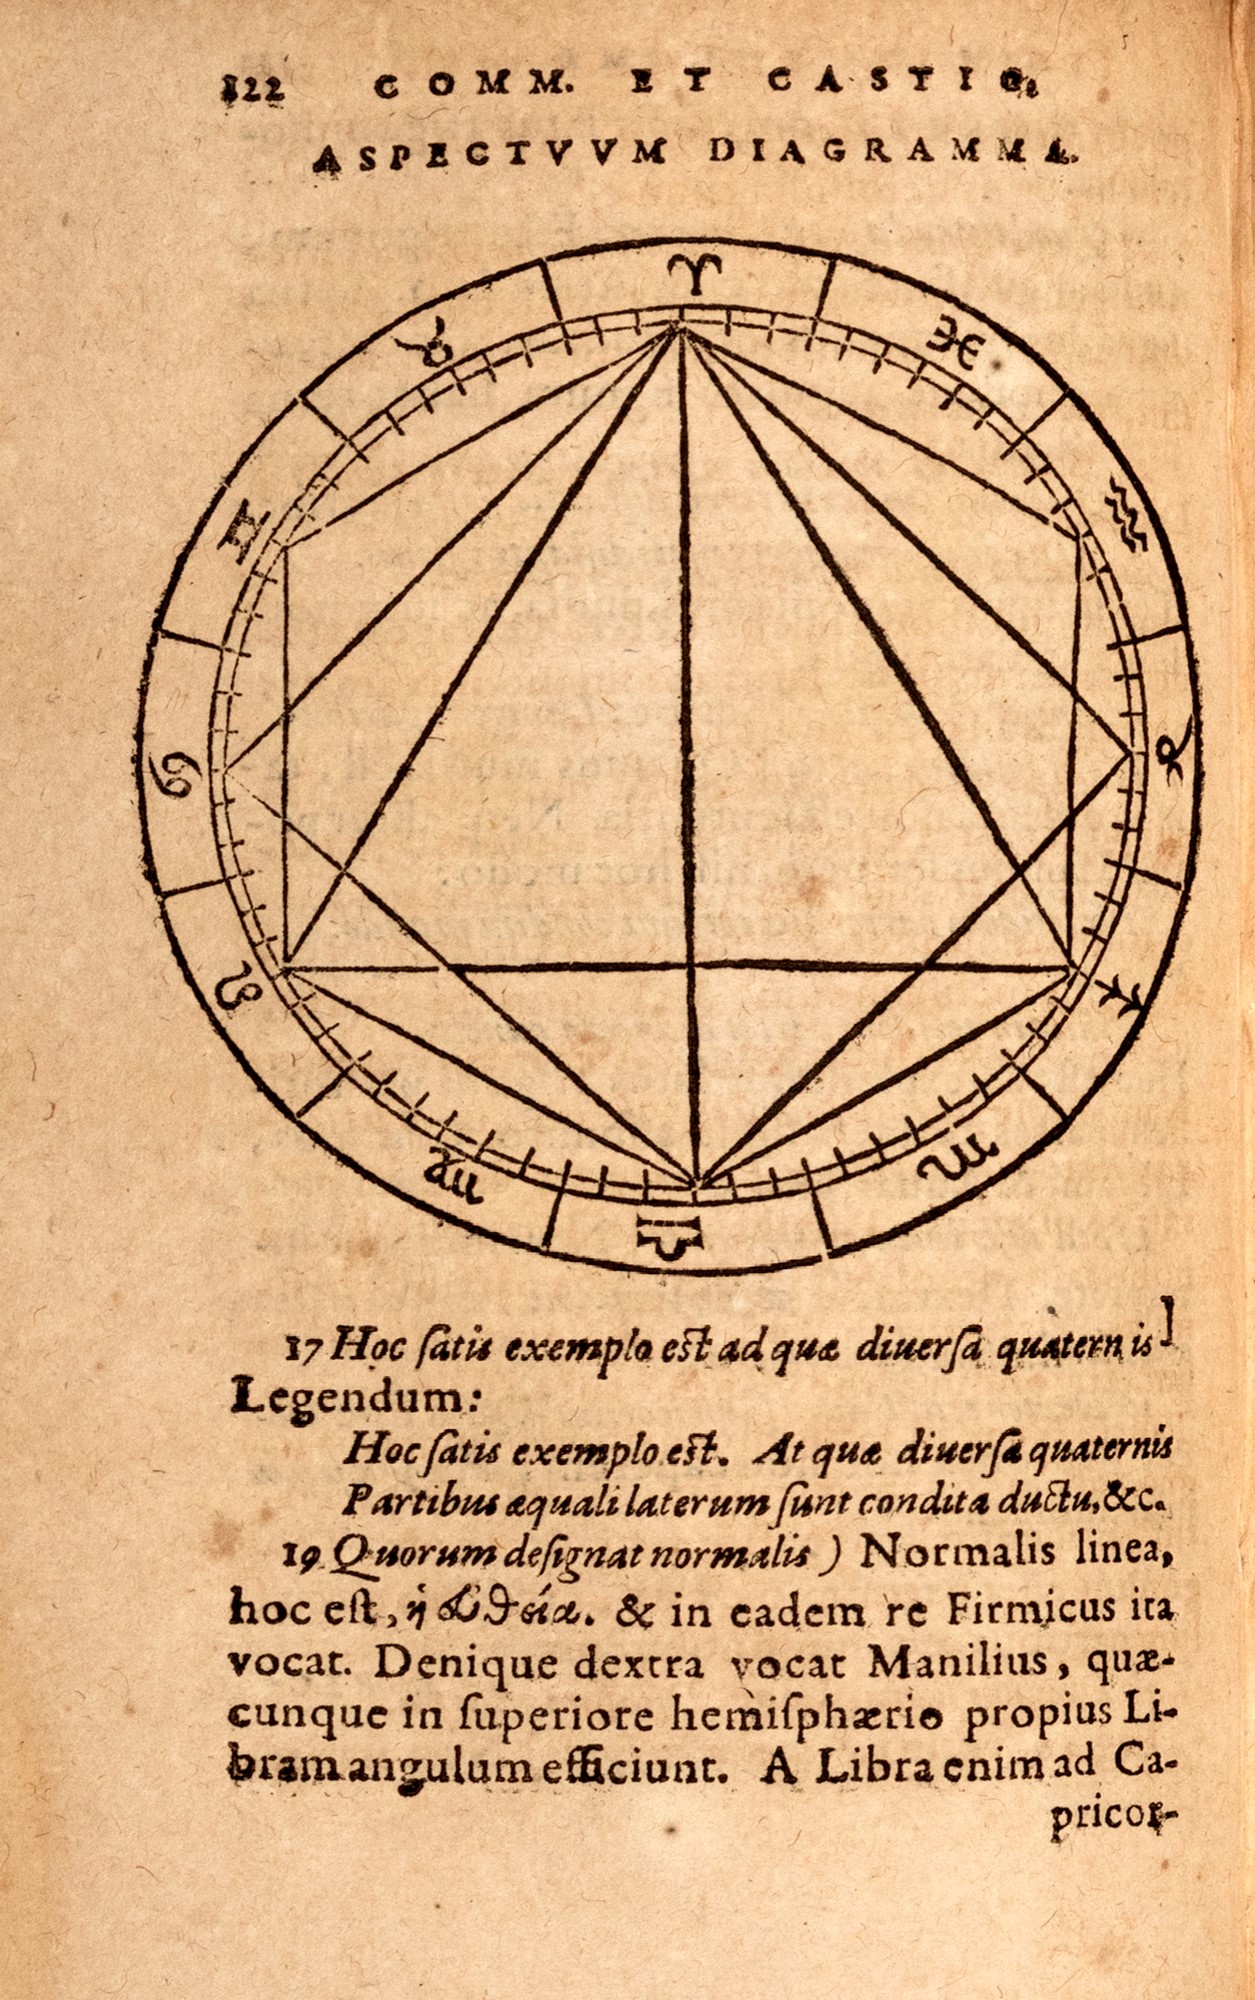 122 COMM. ET CASTIG.
ASPECTVVM DIAGRAMMA.
♈
♉
♓
♊
♒
♋
♑
♌
♐
♍
♏
♎
17 Hoc ſatis exemplo est ad quæ diuerſa quaternis]
Legendum:
Hoc ſatis exemplo est. At quæ diuerſa quaternis
Partibus æquali laterum ſunt condita ductu, &c.
19 Quorum deſignat normalis ) Normalis linea,
hoc eſt, ἡ εὐθεία. & in eadem re Firmicus ita
vocat. Denique dextra vocat Manilius, quæ-
cunque in ſuperiore hemiſphærio propius Li-
bram angulum efficiunt. A Libra enim ad Ca-
pricor-